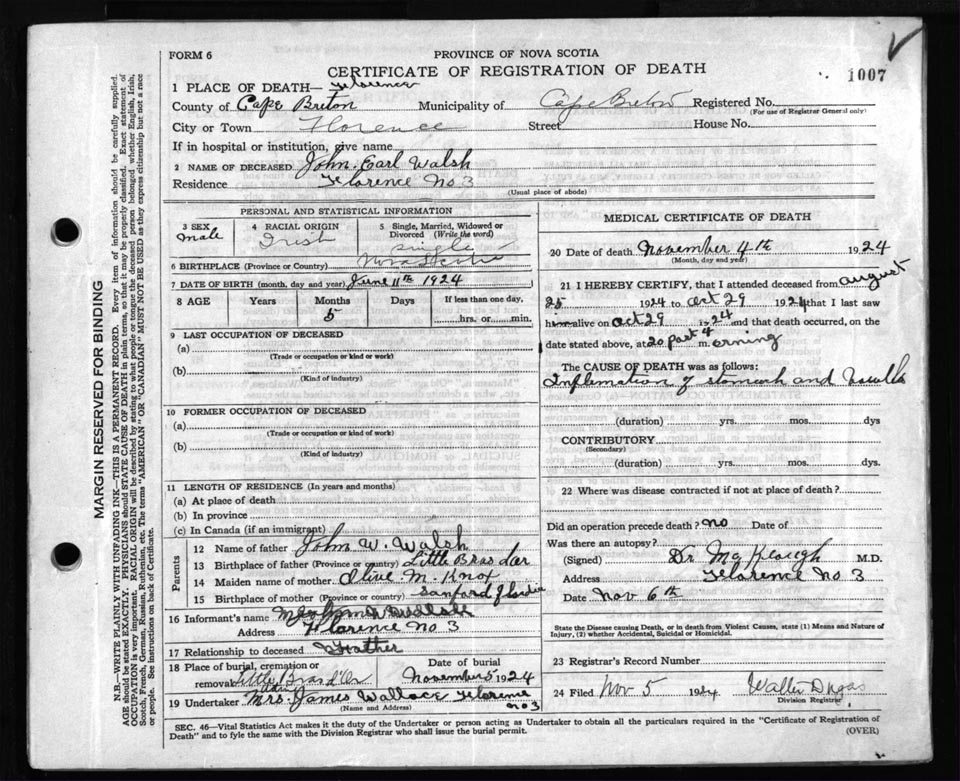 FORM 6
PROVINCE OF NOVA SCOTIA
CERTIFICATE OF REGISTRATION OF DEATH
1007
1 PLACE OF DEATH— Florence
County of Cape Breton Municipality of Cape Breton Registered No.
(For use of Registrar General only)
City or Town Florence Street House No.
If in hospital or institution, give name
2 NAME OF DECEASED John. Earl Walsh
Residence Florence No 3
(Usual place of abode)
PERSONAL AND STATISTICAL INFORMATION
3 SEX
male
4 RACIAL ORIGIN
Irish
5 Single, Married, Widowed or Divorced (Write the word)
single
6 BIRTHPLACE (Province or Country) Nova Scotia
7 DATE OF BIRTH (month, day and year) June 11th 1924
8 AGE Years Months Days If less than one day,
5 hrs. or min.
9 LAST OCCUPATION OF DECEASED
(a)
(Trade or occupation or kind of work)
(b)
(Kind of industry)
10 FORMER OCCUPATION OF DECEASED
(a)
(Trade or occupation or kind of work)
(b)
(Kind of industry)
11 LENGTH OF RESIDENCE (In years and months)
(a) At place of death
(b) In province
(c) In Canada (if an immigrant)
Parents
12 Name of father John W. Walsh
13 Birthplace of father (Province or Country) Little Bras dor
14 Maiden name of mother Olive M. Knox
15 Birthplace of mother (Province or Country) Sanford
16 Informant's name
Address Florence No 3
17 Relationship to deceased Father
18 Place of burial, cremation or removal Little Bras d'Or
Date of burial
November 5 1924
19 Undertaker Mrs. James Wallace Florence
No 3
(Name and Address)
MEDICAL CERTIFICATE OF DEATH
20 Date of death November 4th 1924
(Month, day and year)
21 I HEREBY CERTIFY, that I attended deceased from august
25 1924 to oct 29 1924 that I last saw
him alive on oct 29 1924 and that death occurred, on
date stated above, at 20 past 4 m. orning
The CAUSE OF DEATH was as follows:
Inflemation of stomach and
(duration) yrs. mos. dys
CONTRIBUTORY
(Secondary)
(duration) yrs. mos. dys.
22 Where was disease contracted if not at place of death?
Did an operation precede death? no Date of
Was there an autopsy?
(Signed) Dr M.D.
Address Florence No 3
Date Nov 6th
State the Disease causing Death, or in death from Violent Causes, state (1) Means and Nature of Injury, (2) whether Accidental, Suicidal or Homicidal.
23 Registrar's Record Number
24 Filed Nov 5 1924 Walter Dugas
Division Registrar
SEC. 46—Vital Statistics Act makes it the duty of the Undertaker or person acting as Undertaker to obtain all the particulars required in the "Certificate of Registration of
Death" and to fyle the same with the Division Registrar who shall issue the burial permit.
(OVER)
MARGIN RESERVED FOR BINDING
N.B.—WRITE PLAINLY WITH UNFADING INK—THIS IS A PERMANENT RECORD. Every item of information should be carefully supplied.
AGE should be stated EXACTLY. PHYSICIANS should STATE CAUSE OF DEATH in plain terms, so that it may be properly classified. Exact statement of
OCCUPATION is very important. RACIAL ORIGIN will be described by stating to what people or tongue the deceased person belonged whether English, Irish,
Scotch, French, German, Russian, Ruthenian, etc. The terms "AMERICAN" OR "CANADIAN" MUST NOT BE USED as they express citizenship but not a race
or people. See instructions on back of Certificate.